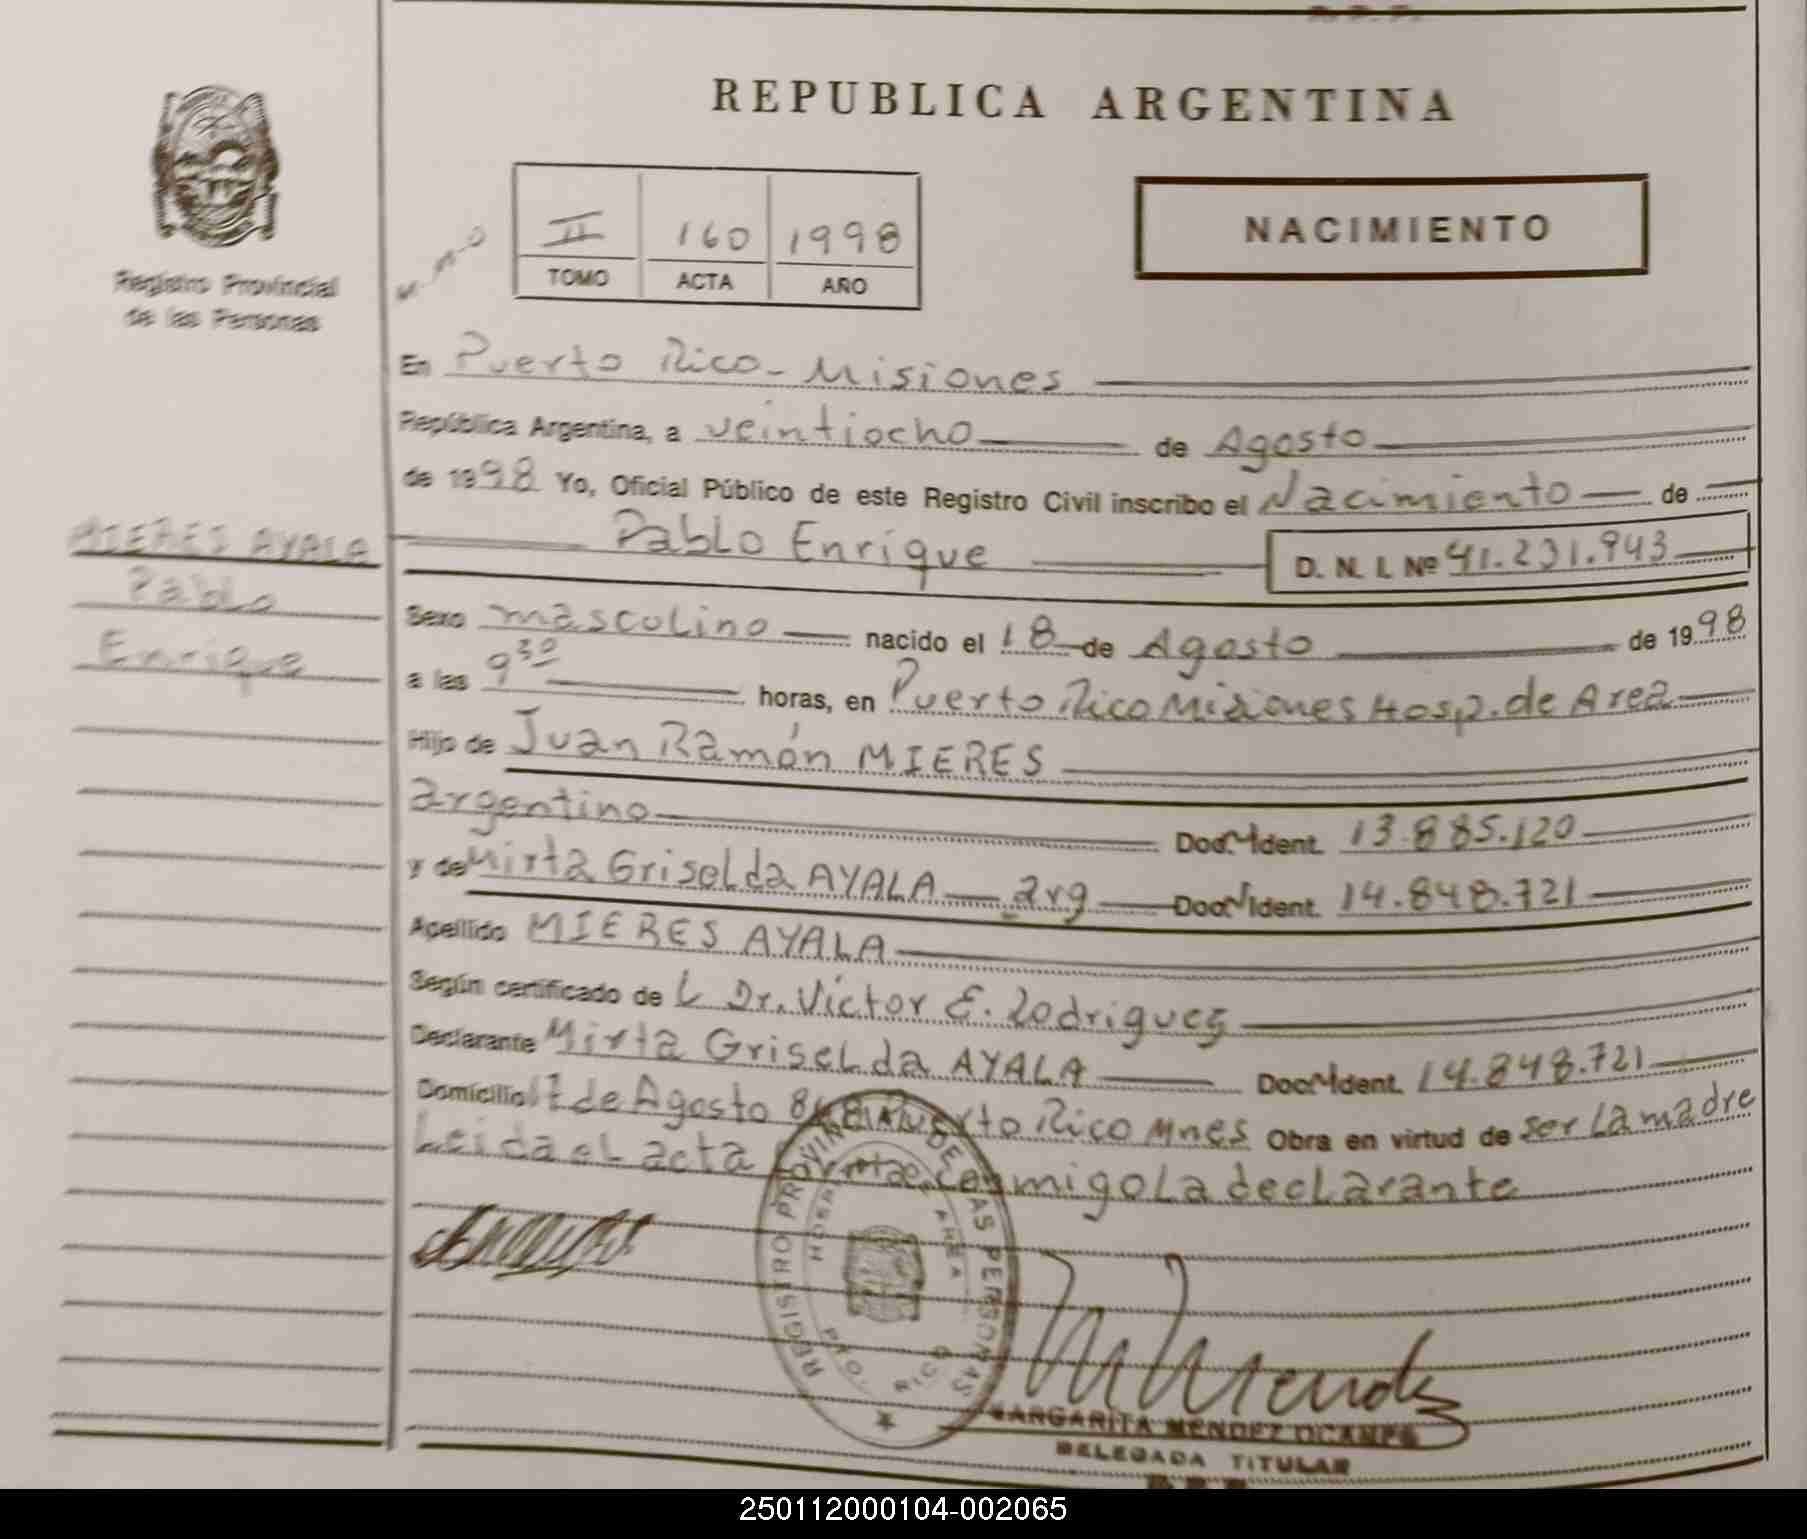 REPUBLICA ARGENTINA
Registro Provincial
de las Personas
II 160 1998
TOMO ACTA AÑO
NACIMIENTO
En Puerto Rico - Misiones
República Argentina, a veintiocho de Agosto
de 1998 Yo, Oficial Público de este Registro Civil inscribo el Nacimiento de
MIERES AYALA
Pablo
Enrique
Pablo Enrique D. N. I. Nº 41.231.943
Sexo masculino nacido el 18 de Agosto de 1998
a las 9 30 horas, en Puerto Rico Misiones Hosp. de Area
Hijo de Juan Ramón MIERES
argentino Doc. Ident. 13.885.120
y de Mirta Griselda AYALA arg Doc. Ident. 14.848.721
Apellido MIERES AYALA
Según certificado de L Dr. Víctor E. Rodriguez
Declarante Mirta Griselda AYALA Doc. Ident. 14.848.721
Domicilio 17 de Agosto Puerto Rico Mnes Obra en virtud de ser la madre
Leida el acta conmigo la declarante
REGISTRO PROVINCIAL DE LAS PERSONAS
HOSP. AREA
PTO. RICO
M Mendez
MARGARITA MENDEZ OCAMPO
DELEGADA TITULAR
250112000104-002065